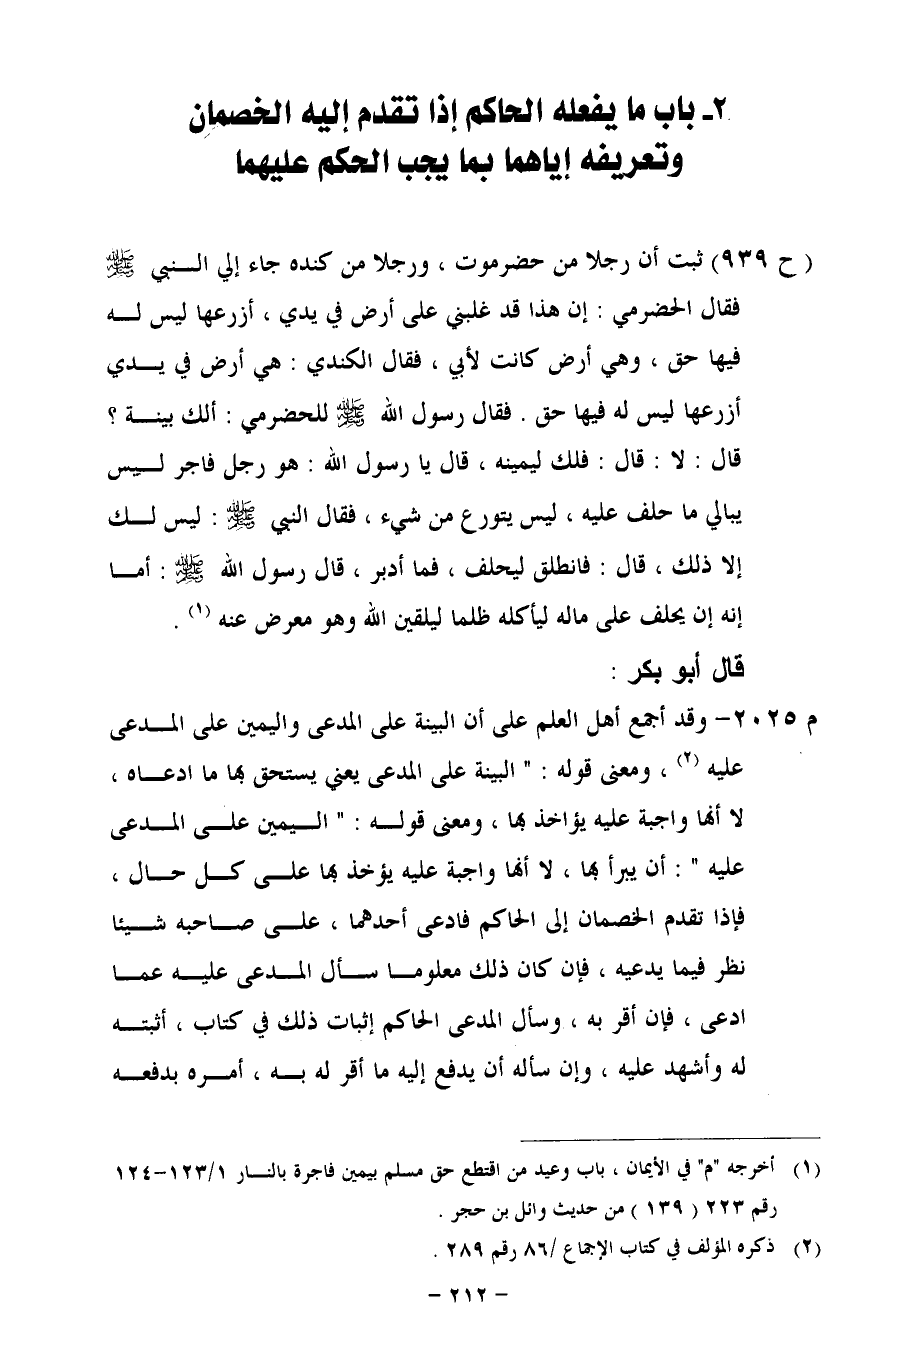 ٢ـ باب ما يفعله الحاكم إذا تقدم إليه الخصمان
وتعريفه إياهما بما يجب الحكم عليهما
( ح ٩٣٩) ثبت أن رجلا من حضرموت ، ورجلا من كنده جاء إلي النبي ﷺ
فقال الحضرمي : إن هذا قد غلبني على أرض في يدي ، أزرعها ليس له
فيها حق ، وهي أرض كانت لأبي ، فقال الكندي : هي أرض في يدي
أزرعها ليس له فيها حق . فقال رسول الله ﷺ للحضرمي : ألك بينة ؟
قال : لا : قال : فلك ليمينه ، قال يا رسول الله : هو رجل فاجر ليس
يبالي ما حلف عليه ، ليس يتورع من شيء ، فقال النبي ﷺ : ليس لك
إلا ذلك ، قال : فانطلق ليحلف ، فما أدبر ، قال رسول الله ﷺ : أما
إنه إن يحلف على ماله ليأكله ظلما ليلقين الله وهو معرض عنه (١) .
قال أبو بكر :
م ٢٠٢٥- وقد أجمع أهل العلم على أن البينة على المدعى واليمين على المدعى
عليه (٢) ، ومعنى قوله : " البينة على المدعى يعني يستحق بها ما ادعاه ،
لا أنها واجبة عليه يؤاخذ بها ، ومعنى قوله : " اليمين على المدعى
عليه " : أن يبرأ بها ، لا أنها واجبة عليه يؤخذ بها على كل حال ،
فإذا تقدم الخصمان إلى الحاكم فادعى أحدهما ، على صاحبه شيئا
نظر فيما يدعيه ، فإن كان ذلك معلوما سأل المدعى عليه عما
ادعى ، فإن أقر به ، وسأل المدعى الحاكم إثبات ذلك في كتاب ، أثبته
له وأشهد عليه ، وإن سأله أن يدفع إليه ما أقر له به ، أمره بدفعه
(١) أخرجه "م" في الأيمان ، باب وعيد من اقتطع حق مسلم بيمين فاجرة بالنار ١/١٢٣-١٢٤
رقم ٢٢٣ ( ١٣٩ ) من حديث وائل بن حجر .
(٢) ذكره المؤلف في كتاب الإجماع /٨٦ رقم ٢٨٩ .
- ٢١٢ -